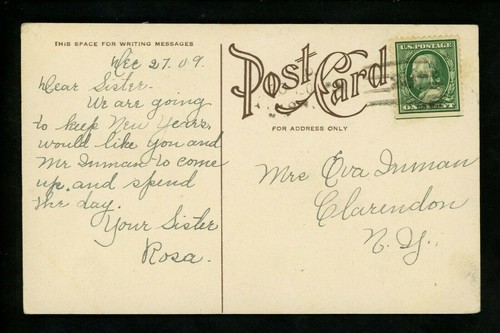 THIS SPACE FOR WRITING MESSAGES
Dec 27.09.
Dear Sister.
We are going
to keep New Years,
would like you and
Mr Inman to come
up, and spend
the day.
Your Sister
Rosa.
Post Card
FOR ADDRESS ONLY
U.S. POSTAGE
ONE CENT
Mrs Eva Inman
Clarendon
N. Y.